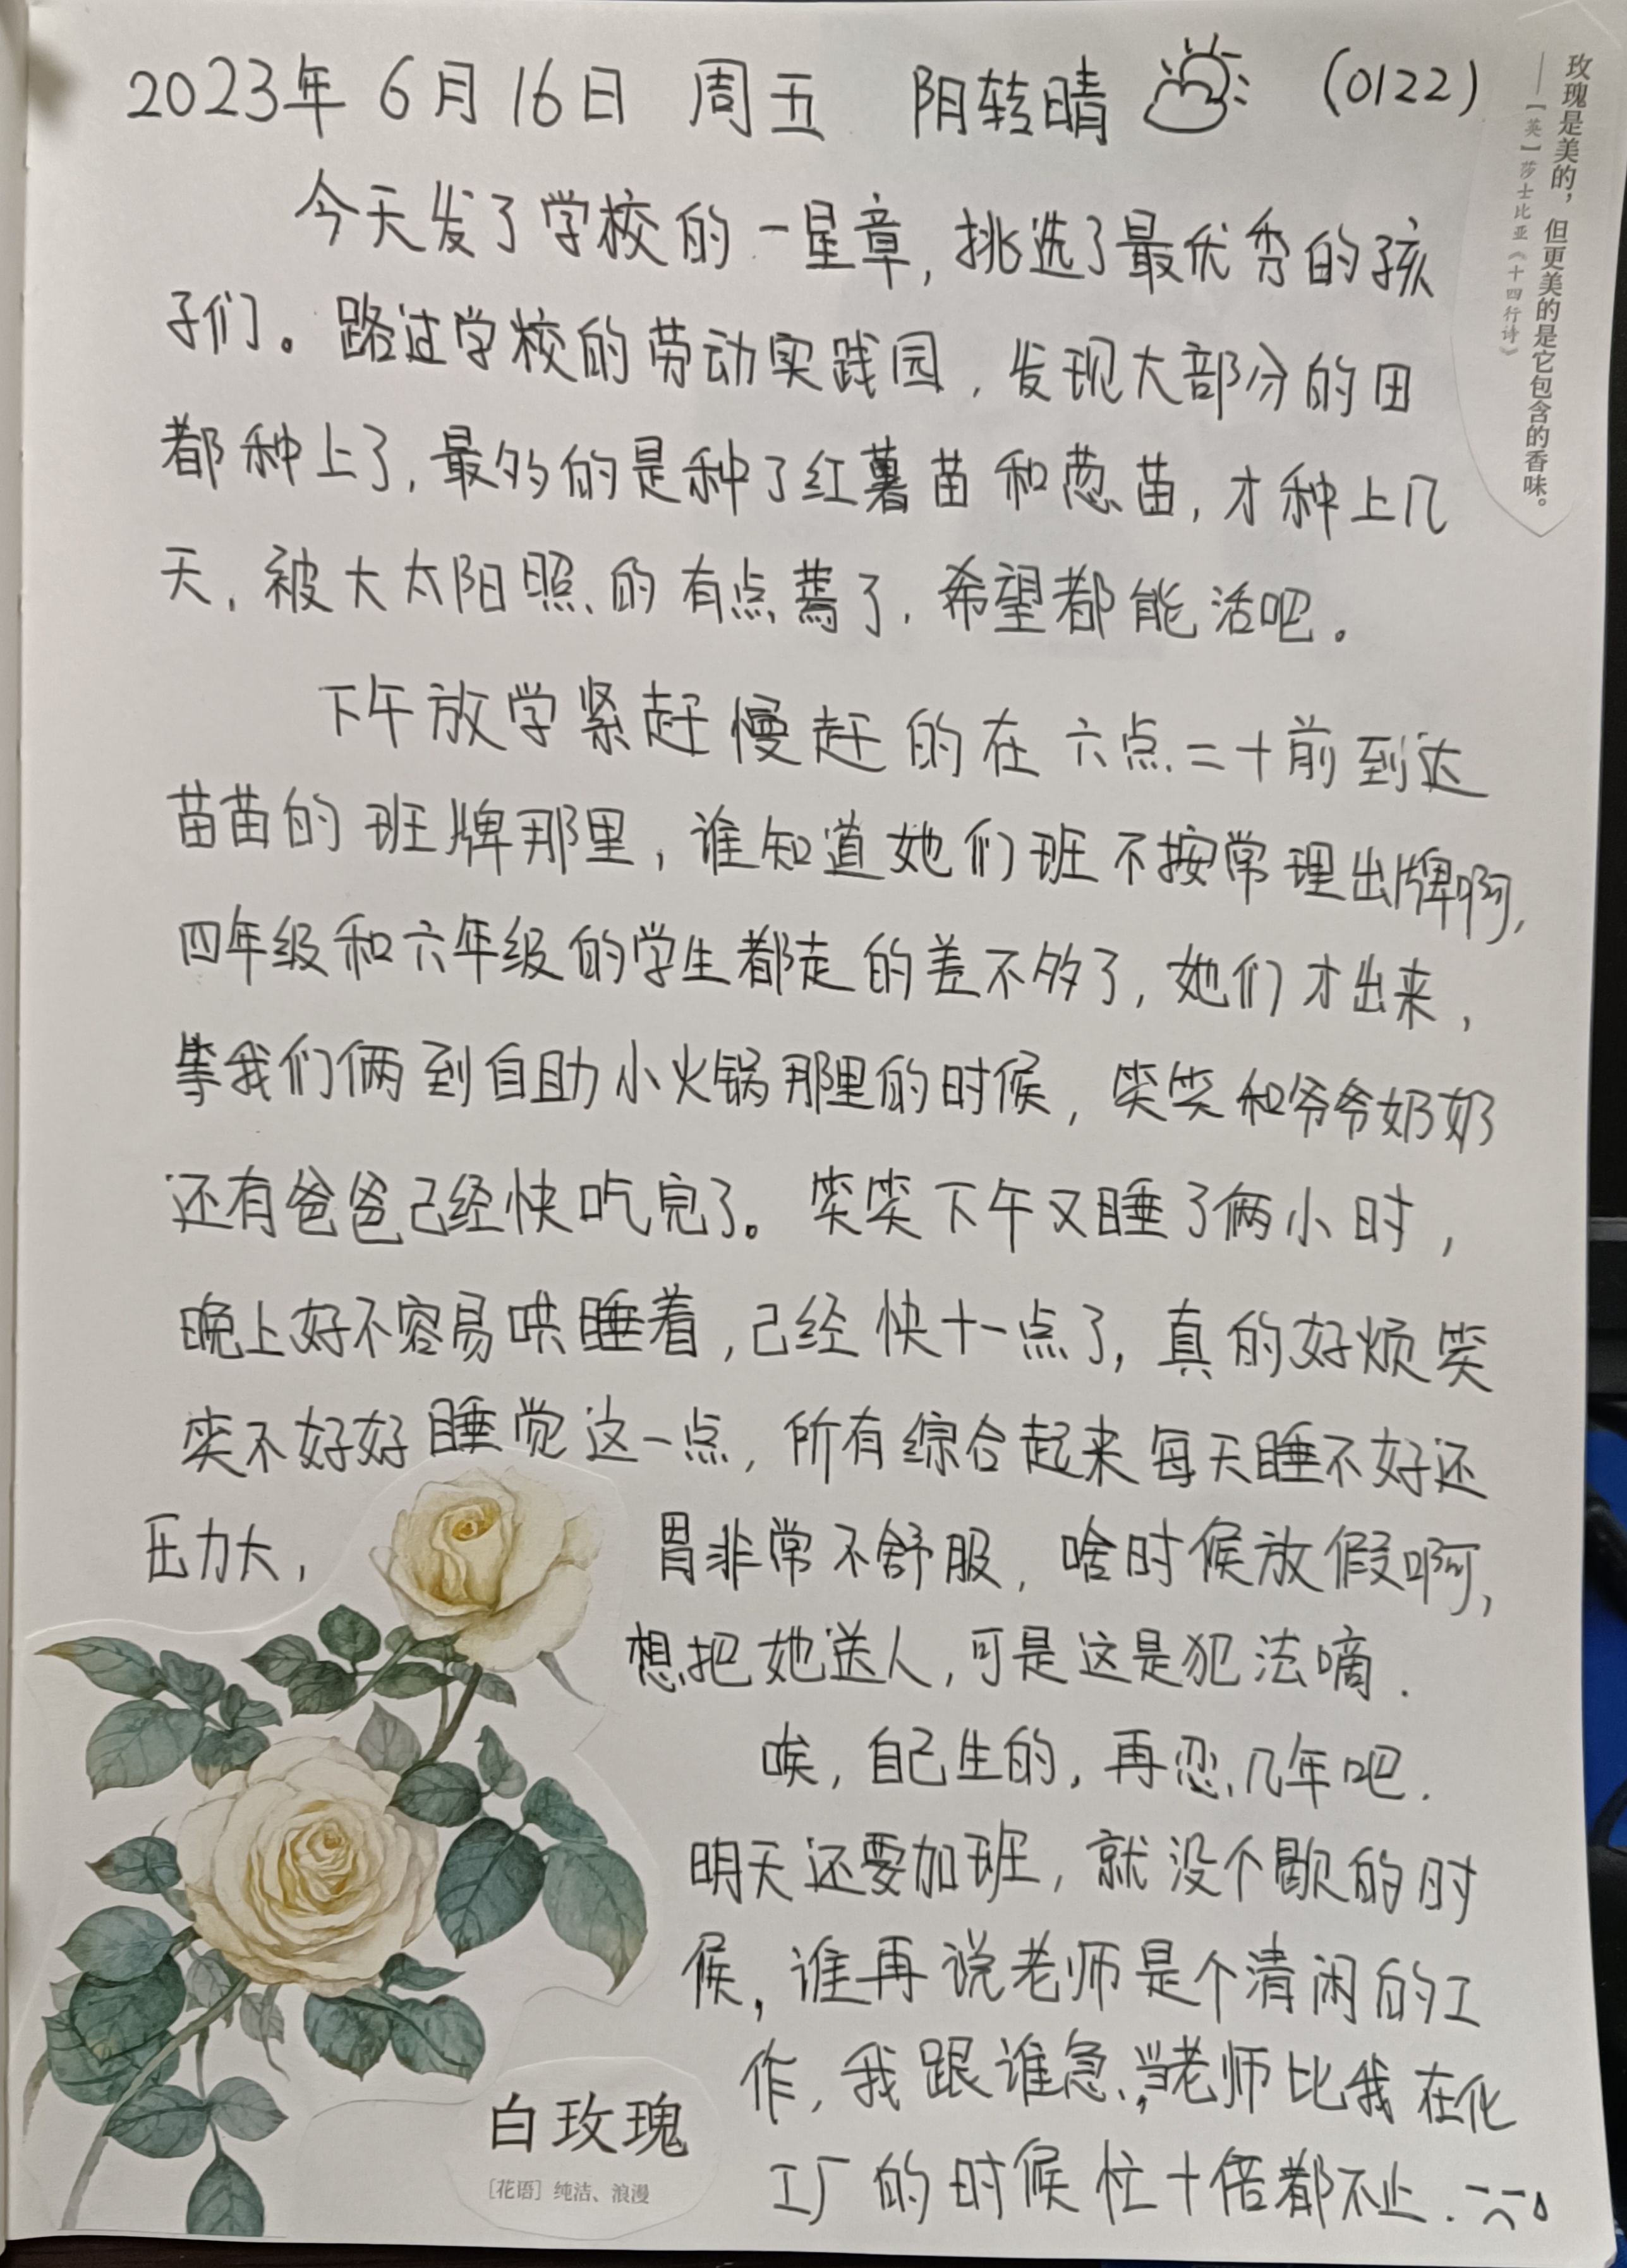 2023年 6月 16日 周五 阴转晴 (0122)
玫瑰是美的，但更美的是它包含的香味。
——【英】莎士比亚《十四行诗》
今天发了学校的一星章，挑选了最优秀的孩
子们。路过学校的劳动实践园，发现大部分的田
都种上了，最多的是种了红薯苗和葱苗，才种上几
天，被大太阳照的有点蔫了，希望都能活吧。
下午放学紧赶慢赶的在六点二十前到达
苗苗的班牌那里，谁知道她们班不按常理出牌啊，
四年级和六年级的学生都走的差不多了，她们才出来，
等我们俩到自助小火锅那里的时候，笑笑和爷爷奶奶
还有爸爸已经快吃完了。笑笑下午又睡了俩小时，
晚上好不容易哄睡着，已经快十一点了，真的好烦笑
笑不好好睡觉这一点，所有综合起来每天睡不好还
压力大，胃非常不舒服，啥时候放假啊，
想把她送人，可是这是犯法嘀.
唉，自己生的，再忍几年吧.
明天还要加班，就没个歇的时
候，谁再说老师是个清闲的工
作，我跟谁急，当老师比我在化
工厂的时候忙十倍都不止.
白玫瑰
［花语］纯洁、浪漫